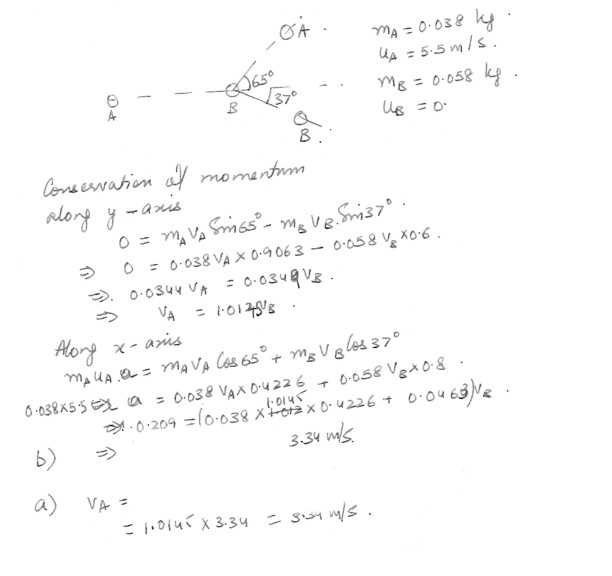 A
65°
B
37°
A
B
m_A = 0.038 kg
u_A = 5.5 m/s.
m_B = 0.058 kg.
u_B = 0.
Conservation of momentum
along y-axis
0 = m_A V_A Sin65° - m_B V_B Sin37°.
⇒ 0 = 0.038 V_A × 0.9063 - 0.058 V_B × 0.6.
⇒. 0.0344 V_A = 0.0349 V_B.
⇒ V_A = 1.0145 V_B.
Along x-axis
m_A u_A = m_A V_A Cos65° + m_B V_B Cos37°
0.038×5.5 = 0.038 V_A × 0.4226 + 0.058 V_B × 0.8.
⇒ 0.209 = (0.038 × 1.0145 × 0.4226 + 0.0463) V_B
b) ⇒ 3.34 m/s.
a) V_A =
= 1.0145 × 3.34 = m/s.